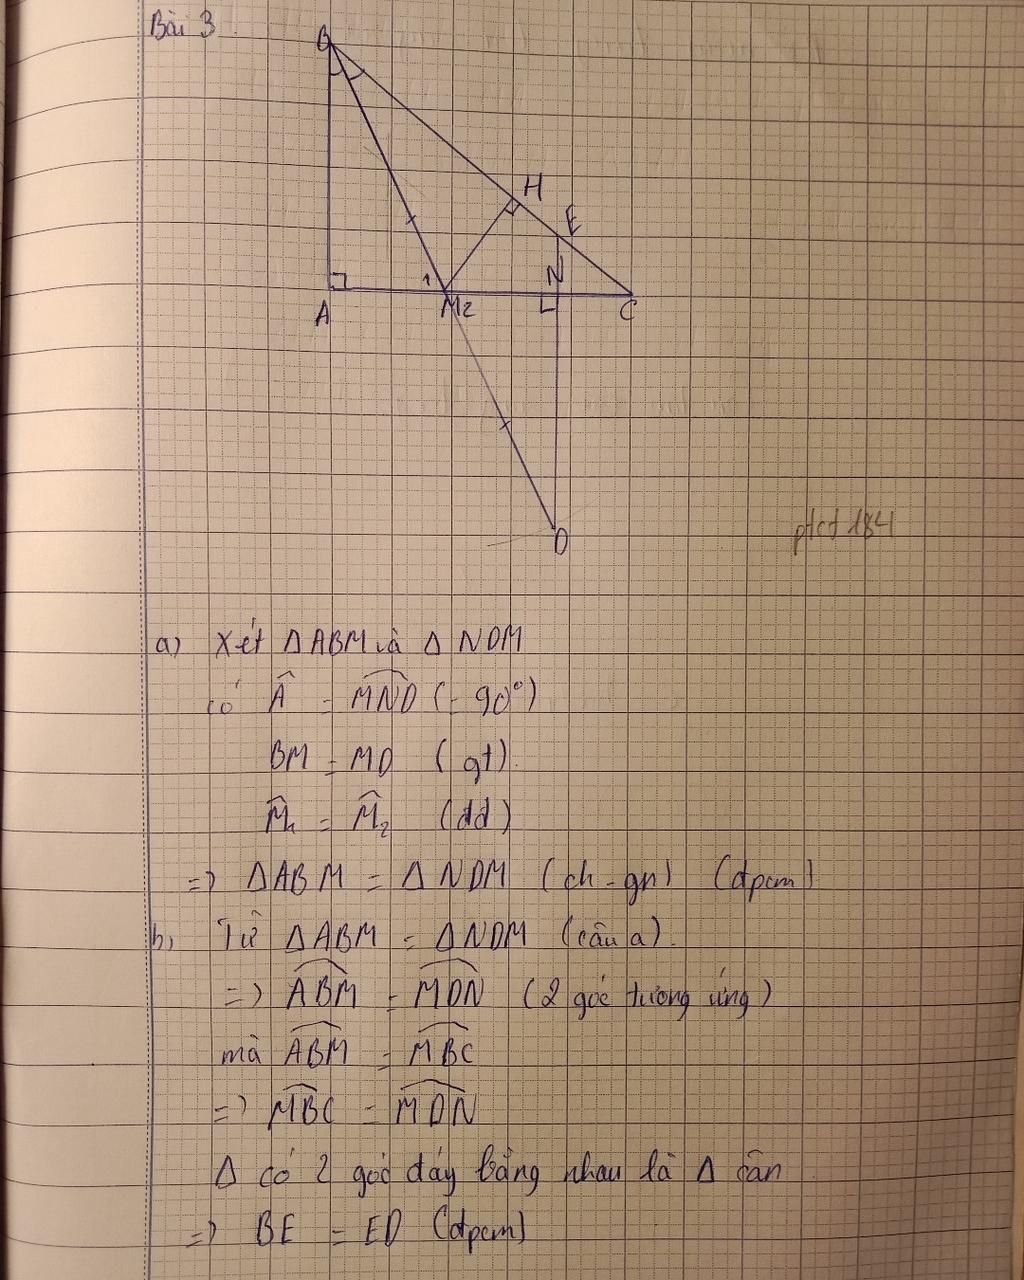 Bài 3
B
H
E
N
1
A
M2
C
D
ptct 184
a) Xét Δ ABM và Δ NDM
có Â = MND (= 90°)
BM = MD (gt).
M̂1 = M̂2 (dd)
=> ΔABM = Δ NDM (ch - gn) (dpcm)
b, Từ ΔABM = ΔNDM (câu a).
=> ABM = MDN (2 góc tương ứng)
mà ABM = MBC
=> MBC = MDN
Δ có 2 góc đáy bằng nhau là Δ cân
=> BE = ED (dpcm)